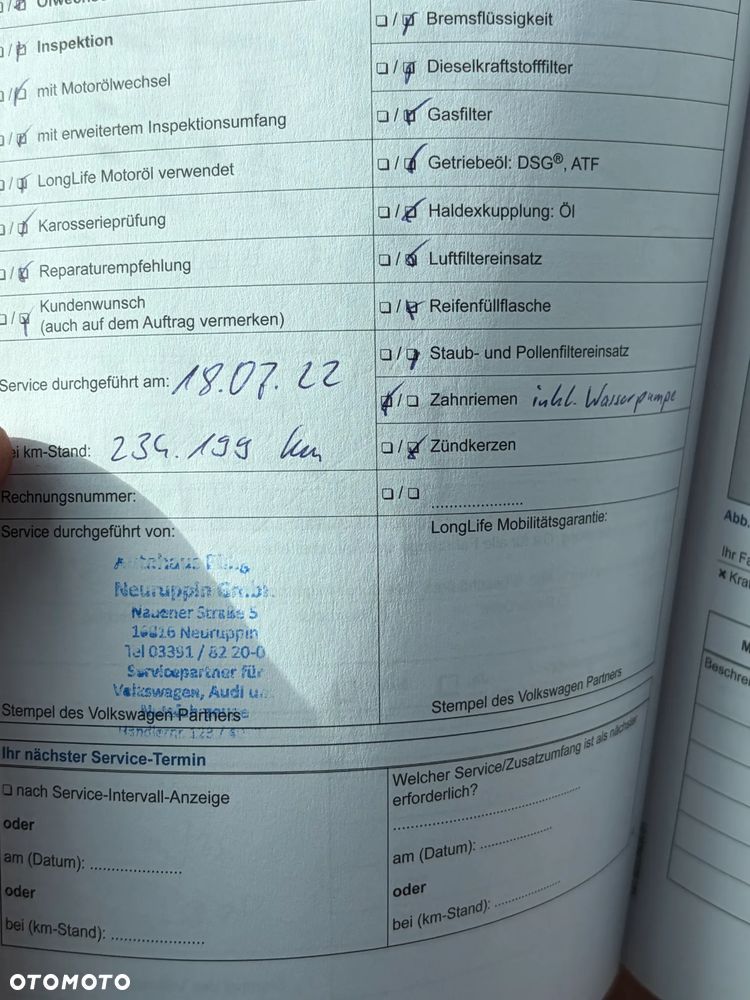 Inspektion
mit Motorölwechsel
mit erweitertem Inspektionsumfang
LongLife Motoröl verwendet
Karosserieprüfung
Reparaturempfehlung
Kundenwunsch
(auch auf dem Auftrag vermerken)
Service durchgeführt am: 18.07.22
km-Stand: 234.199 km
Rechnungsnummer:
Service durchgeführt von:
Autohaus
Neuruppin GmbH
Nauener Straße 5
16816 Neuruppin
Tel 03391 / 82 20-0
Servicepartner für
Volkswagen, Audi u.
Stempel des Volkswagen Partners
Bremsflüssigkeit
Dieselkraftstofffilter
Gasfilter
Getriebeöl: DSG®, ATF
Haldexkupplung: Öl
Luftfiltereinsatz
Reifenfüllflasche
Staub- und Pollenfiltereinsatz
Zahnriemen inkl. Wasserpumpe
Zündkerzen
LongLife Mobilitätsgarantie:
Stempel des Volkswagen Partners
Ihr nächster Service-Termin
nach Service-Intervall-Anzeige
oder
am (Datum): ....................
oder
bei (km-Stand): ....................
Welcher Service/Zusatzumfang ist als nächster
erforderlich?
am (Datum): ................
oder
bei (km-Stand): ................
Abb.
Ihr
OTOMOTO